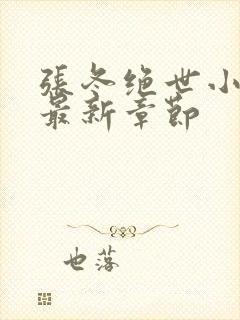 張冬绝世小
最新章節
也落